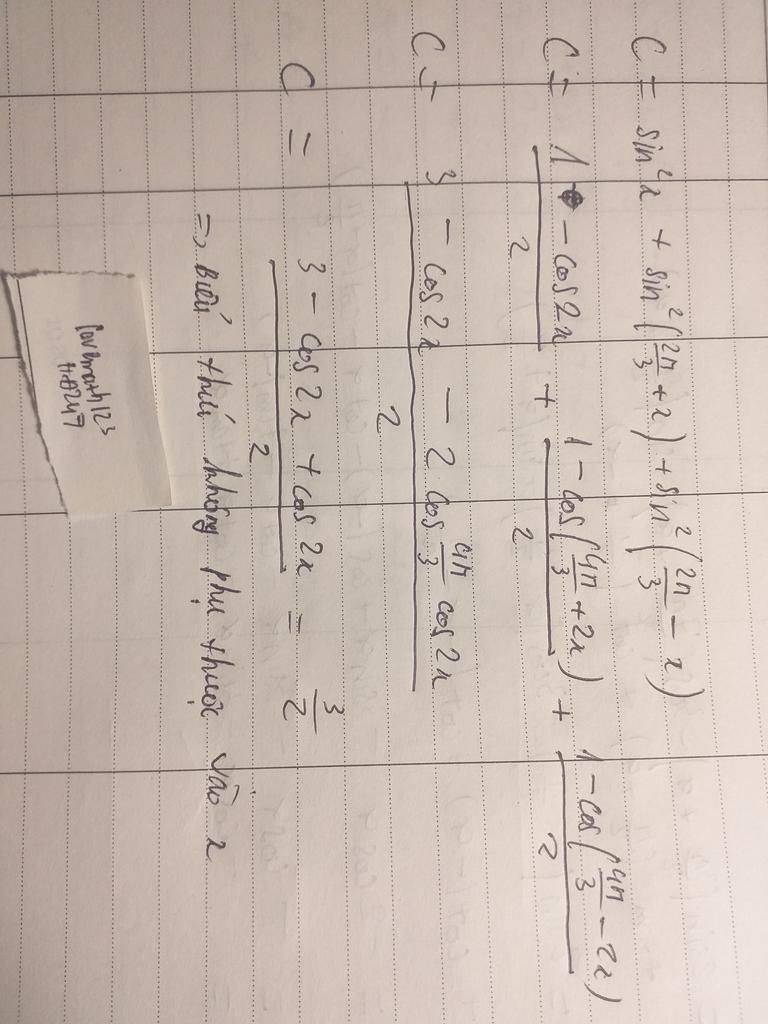 C = sin²x + sin²(2π/3 + x) + sin²(2π/3 - x)
C = (1 - cos2x)/2 + (1 - cos(4π/3 + 2x))/2 + (1 - cos(4π/3 - 2x))/2
C = (3 - cos2x - 2cos 4π/3 cos2x)/2
C = (3 - cos2x + cos2x)/2 = 3/2
=> biểu thức không phụ thuộc vào x
lovemath123